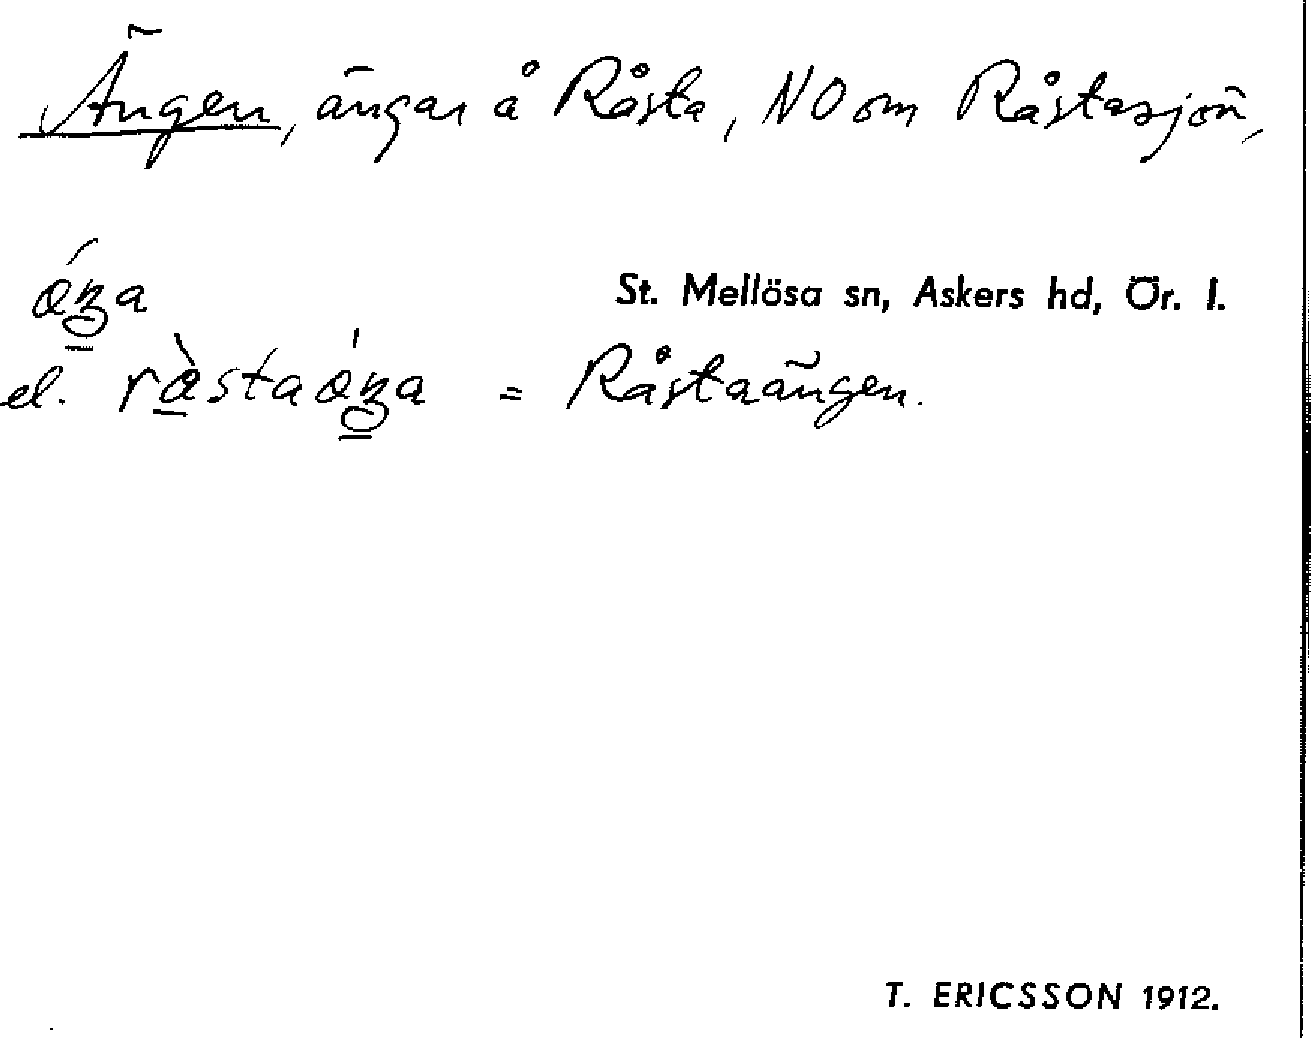 Ängen, ängar å Råsta, NO om Råstasjön,
St. Mellösa sn, Askers hd, Ör. l.
el. = Råstaängen.
T. ERICSSON 1912.